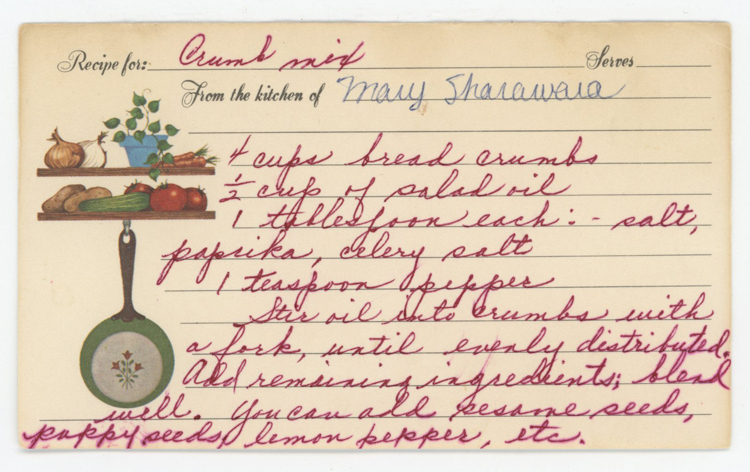 Recipe for: Crumb mix Serves
From the kitchen of Mary Sharawara
4 cups bread crumbs
1/2 cup of salad oil
1 tablespoon each: - salt,
paprika, celery salt
1 teaspoon pepper
Stir oil into crumbs with
a fork, until evenly distributed.
Add remaining ingredients; blend
well. You can add sesame seeds,
poppy seeds, lemon pepper, etc.